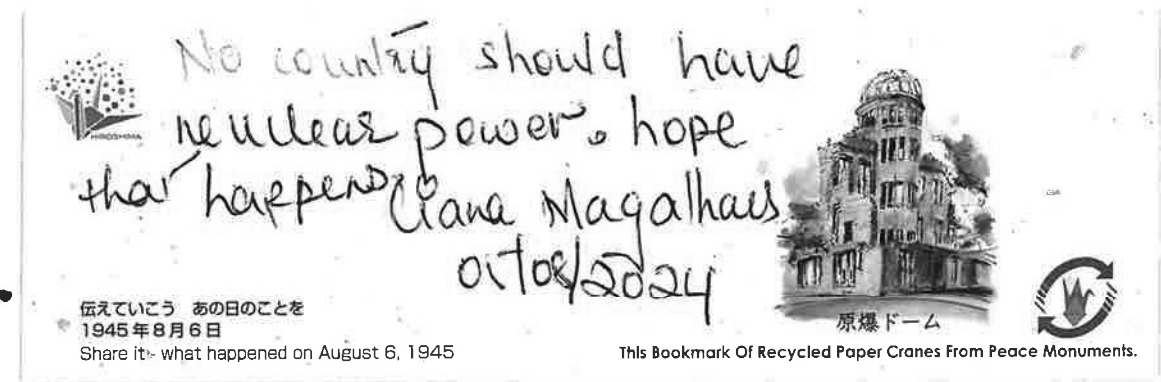 No country should have
neuclear power. hope
that happens. Ciana Magalhaes
01/08/2024
HIROSHIMA
原爆ドーム
伝えていこう あの日のことを
1945年8月6日
Share it - what happened on August 6, 1945
This Bookmark Of Recycled Paper Cranes From Peace Monuments.